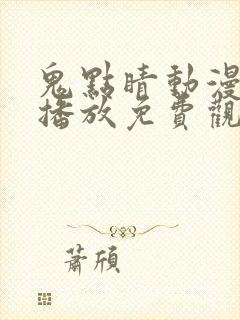 鬼點睛動漫
播放免費觀
蕭頎